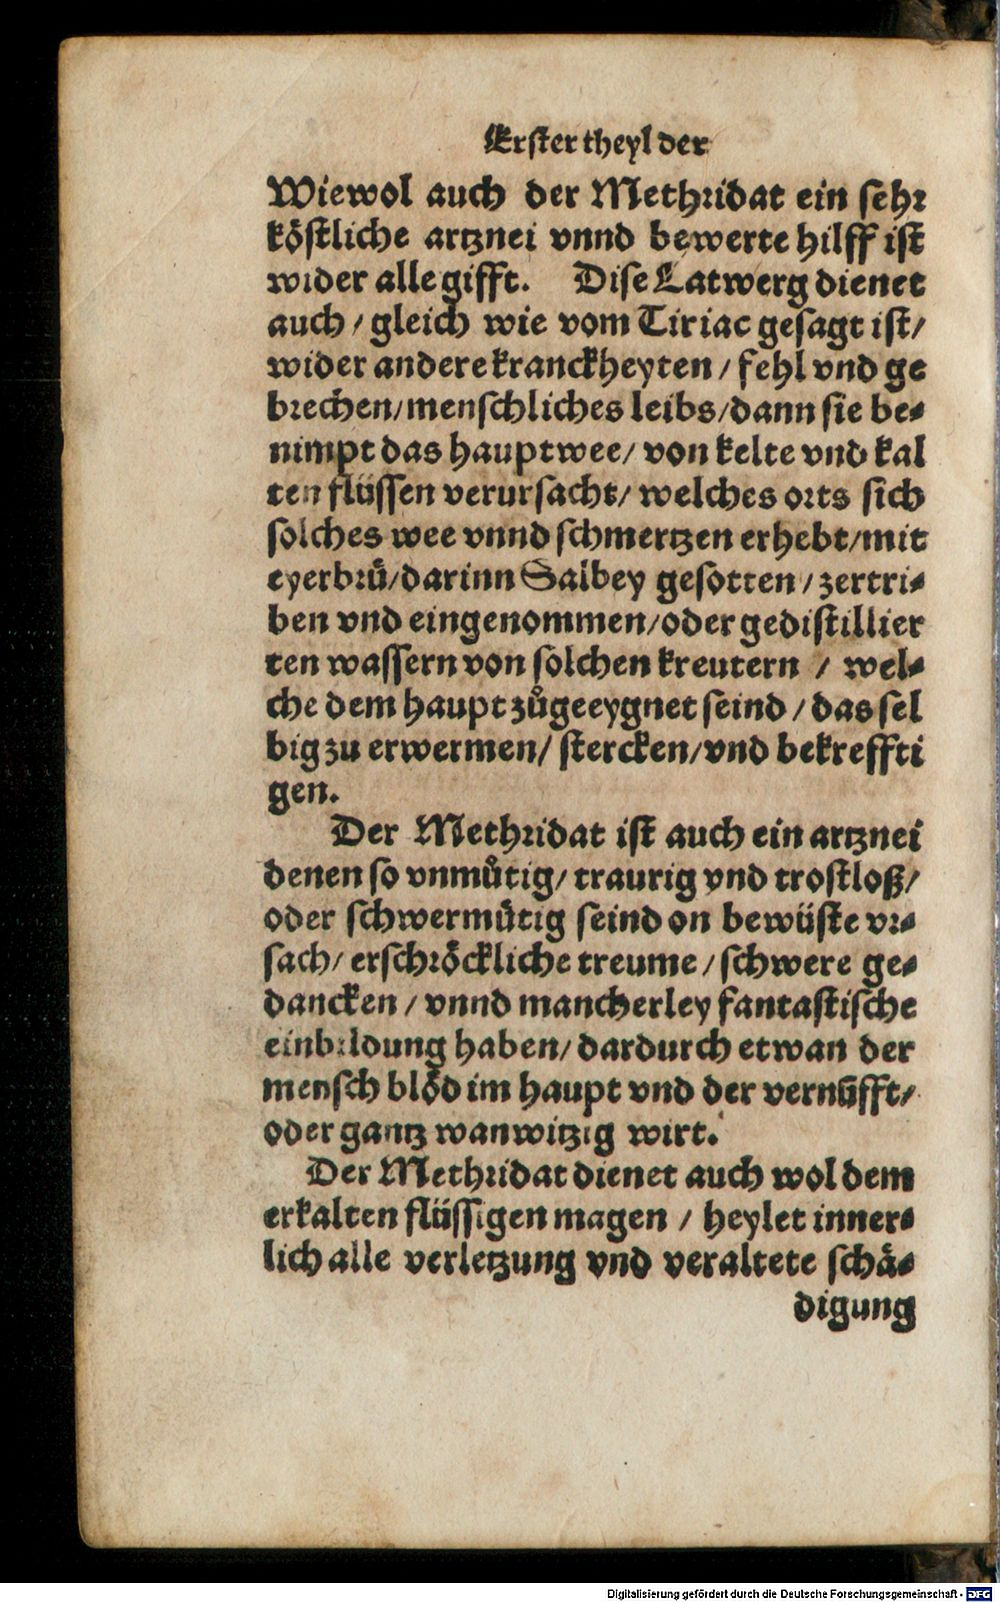 Erster theyl der
Wiewol auch der Methridat ein sehr
köstliche artznei vnnd bewerte hilff ist
wider alle gifft. Dise Latwerg dienet
auch / gleich wie vom Tiriac gesagt ist /
wider andere kranckheyten / fehl vnd ge
brechen / menschliches leibs / dann sie be⸗
nimpt das hauptwee / von kelte vnd kal
ten flüssen verursacht / welches orts sich
solches wee vnnd schmertzen erhebt / mit
eyerbrů / darinn Salbey gesotten / zertri⸗
ben vnd eingenommen / oder gedistillier
ten wassern von solchen kreutern / wel⸗
che dem haupt zůgeeygnet seind / das sel
big zu erwermen / stercken / vnd bekreffti
gen.
Der Methridat ist auch ein artznei
denen so vnmůtig / traurig vnd trostloß /
oder schwermůtig seind on bewüste vr⸗
sach / erschröckliche treume / schwere ge⸗
dancken / vnnd mancherley fantastische
einbildung haben / dardurch etwan der
mensch blöd im haupt vnd der vernufft /
oder gantz wanwitzig wirt.
Der Methridat dienet auch wol dem
erkalten flüssigen magen / heylet inner⸗
lich alle verletzung vnd veraltete schä⸗
digung
Digitalisierung gefördert durch die Deutsche Forschungsgemeinschaft - DFG